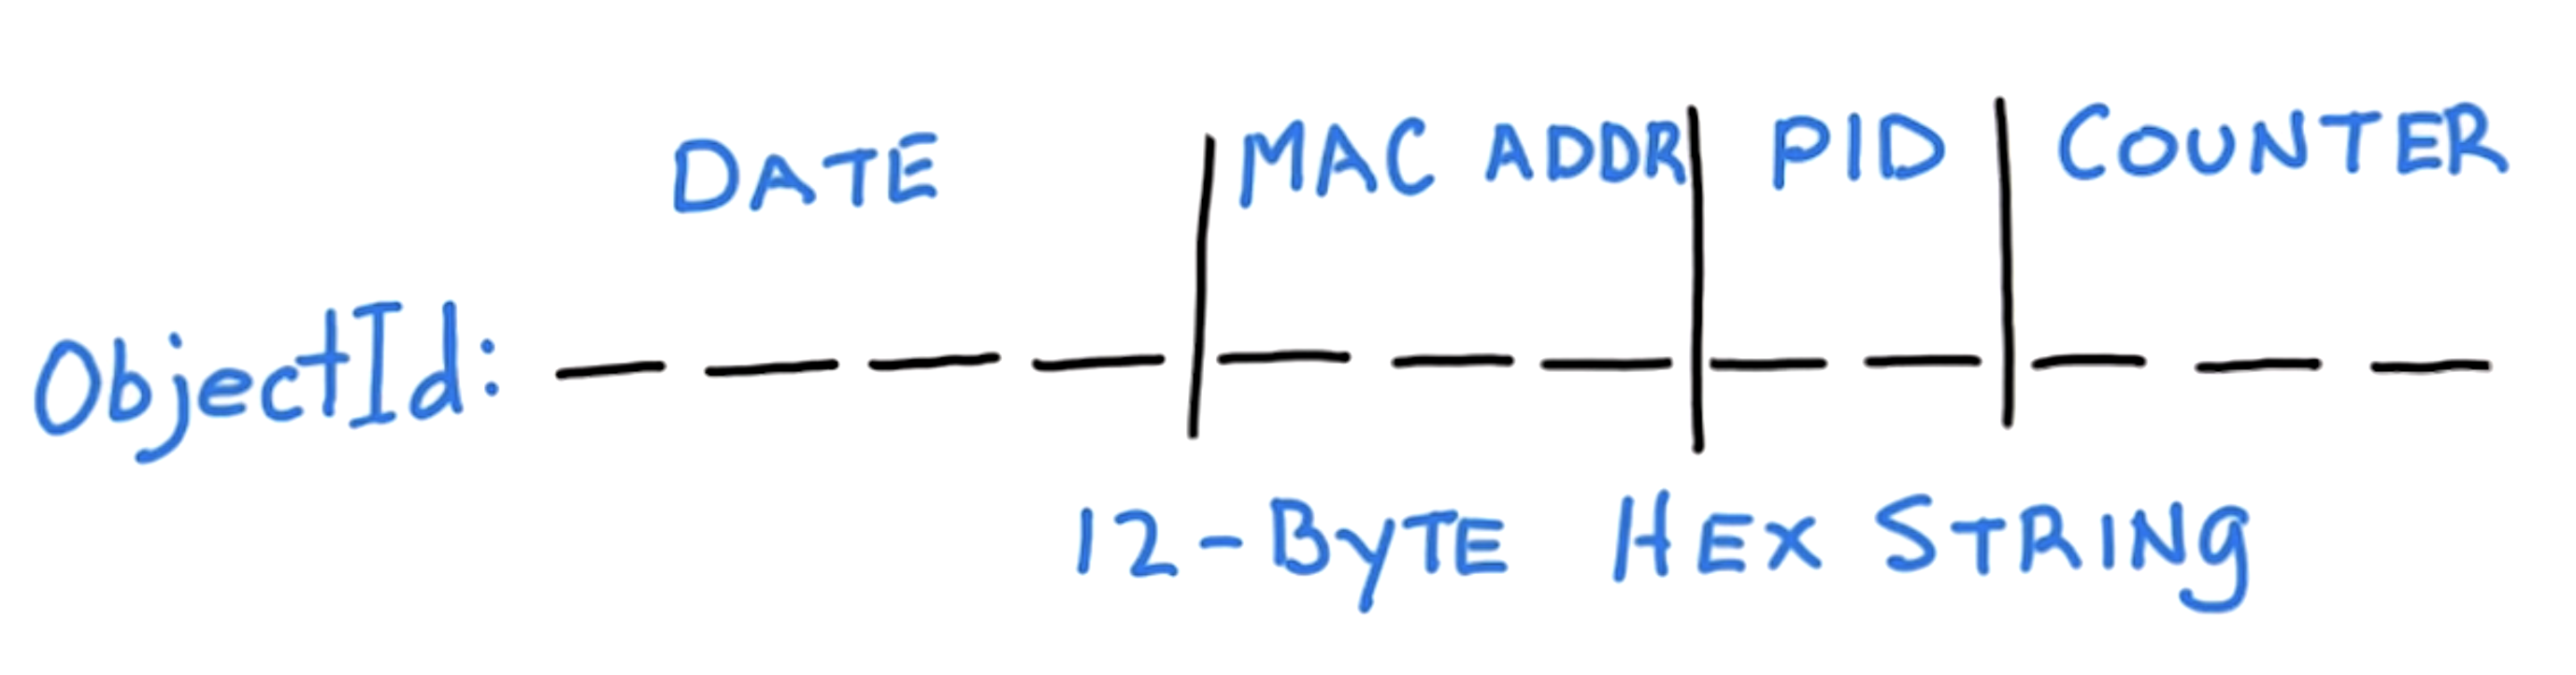 DATE MAC ADDR PID COUNTER
ObjectId:
12-BYTE HEX STRING